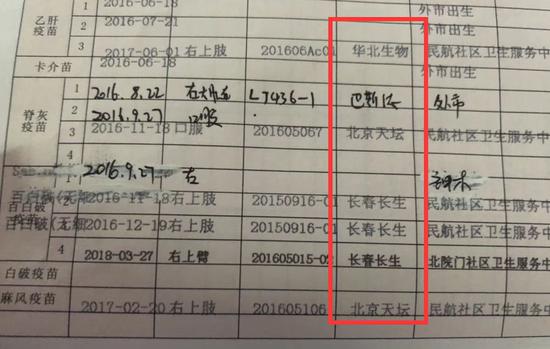 2016-06-18 外市出生
乙肝疫苗 2 2016-07-21 外市出生
3 2017-06-01 右上肢 201606Ac01 华北生物 民航社区卫生服务中
卡介苗 2016-06-18 外市出生
脊灰疫苗 1 2016.8.22 LJ436-1 外市
2 2016.9.27 口服
3 2016-11-18 口服 201605067 北京天坛 民航社区卫生服务中
4
1 2016.9.27 右
百白破(无细 2 2016-11-18 右上肢 20150916-01 长春长生 民航社区卫生服务中
百白破(无细 2016-12-19 右上肢 20150916-01 长春长生 民航社区卫生服务中
疫苗 4 2018-03-27 右上臂 201605015-02 长春长生 北院门社区卫生服务中
白破疫苗
麻风疫苗 2017-02-20 右上肢 201605106 北京天坛 民航社区卫生服务中